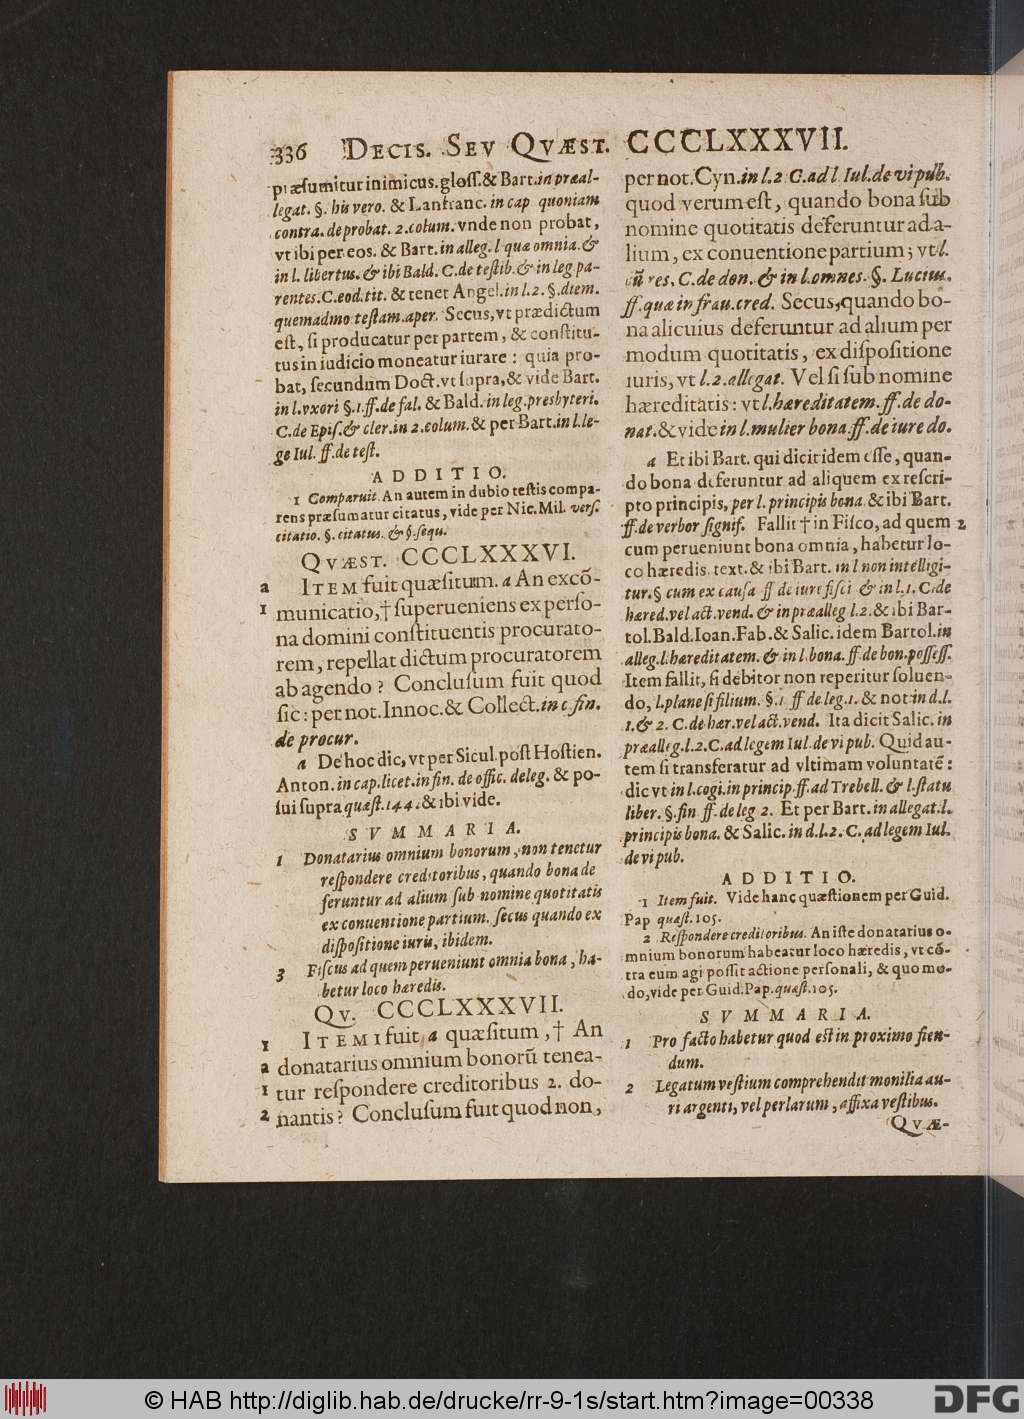 336 DECIS. SEV QVÆST. CCCCLXXXVII.
præsumitur inimicus. gloss. & Bart. in præal-
legat. §. his vero. & Lanfranc. in cap quoniam
contra. de probat. 2. colum. vnde non probat,
vt ibi per eos. & Bart. in alleg. l quæ omnia. &
in l. libertus. & ibi Bald. C. de testib. & in leg pa-
rentes. C. eod. tit. & tenet Angel. in l. 2. §. diem.
quemadmo testam. aper. Secus, vt prædictum
est, si producatur per partem, & constitu-
tus in iudicio moneatur iurare : quia pro-
bat, secundum Doct. vt supra, & vide Bart.
in l. vxori §. 1. ff. de fal. & Bald. in leg. presbyteri.
C. de Epis. & cler. in 2. colum. & per Bart. in l. le-
ge Iul. ff. de test.
ADDITIO.
1 Comparuit. An autem in dubio testis compa-
rens præsumatur citatus, vide per Nic. Mil. vers.
citatio. §. citatus. & §. sequ.
QVÆST. CCCCLXXXVI.
a ITEM fuit quæsitum. a An excō-
1 municatio, † superueniens ex perso-
na domini constituentis procurato-
rem, repellat dictum procuratorem
ab agendo ? Conclusum fuit quod
sic : per not. Innoc. & Collect. in c. fin.
de procur.
a De hoc dic, vt per Sicul. post Hostien.
Anton. in cap. licet. in fin. de offic. deleg. & po-
sui supra quæst. 144. & ibi vide.
SVMMARIA.
1 Donatarius omnium bonorum, non tenetur
respondere creditoribus, quando bona de
feruntur ad alium sub nomine quotitatis
ex conuentione partium. secus quando ex
dispositione iuris, ibidem.
3 Fiscus ad quem perueniunt omnia bona, ha-
betur loco hæredis.
QV. CCCCLXXXVII.
1 ITEM 1 fuit a quæsitum, † An
a donatarius omnium bonorū tenea-
1 tur respondere creditoribus 2. do-
2 nantis? Conclusum fuit quod non,
per not. Cyn. in l. 2 C. ad l Iul. de vi pub.
quod verum est, quando bona sub
nomine quotitatis deferuntur ad a-
lium, ex conuentione partium ; vt l.
cū res. C. de don. & in l. omnes. §. Lucius.
ff. quæ in frau. cred. Secus, quando bo-
na alicuius deferuntur ad alium per
modum quotitatis, ex dispositione
iuris, vt l. 2. allegat. Vel si sub nomine
hæreditatis : vt l. hæreditatem. ff. de do-
nat. & vide in l. mulier bona. ff. de iure do.
a Et ibi Bart. qui dicit idem esse, quan-
do bona deferuntur ad aliquem ex rescri-
pto principis, per l. principis bona & ibi Bart.
ff. de verbor signif. Fallit † in Fisco, ad quem 2
cum perueniunt bona omnia, habetur lo-
co hæredis. text. & ibi Bart. in l non intelligi-
tur. § cum ex causa ff de iure fisci & in l. 1. C. de
hæred. vel act. vend. & in præalleg l. 2. & ibi Bar-
tol. Bald. Ioan. Fab. & Salic. idem Bartol. in
alleg. l. hæreditatem. & in l. bona. ff. de bon. possess.
Item fallit, si debitor non reperitur soluen-
do, l. plane si filium. §. 1 ff de leg. 1. & not in d. l.
1. & 2. C. de hær. vel act. vend. Ita dicit Salic. in
præalleg. l. 2. C. ad legem Iul. de vi pub. Quid au-
tem si transferatur ad vltimam voluntatē :
dic vt in l. cogi. in princip. ff. ad Trebell. & l. statu
liber. §. fin ff. de leg 2. Et per Bart. in allegat. l.
principis bona. & Salic. in d. l. 2. C. ad legem Iul.
de vi pub.
ADDITIO.
1 Item fuit. Vide hanc quæstionem per Guid.
Pap quæst. 105.
2 Respondere creditoribus. An iste donatarius o-
mnium bonorum habeatur loco hæredis, vt cō-
tra eum agi possit actione personali, & quo mo-
do, vide per Guid. Pap. quæst. 105.
SVMMARIA.
1 Pro facto habetur quod est in proximo fien-
dum.
2 Legatum vestium comprehendit monilia au-
ri argenti, vel perlarum, affixa vestibus.
QVÆ-
© HAB http://diglib.hab.de/drucke/rr-9-1s/start.htm?image=00338
DFG